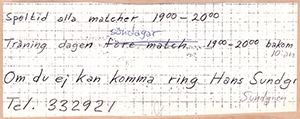 Speltid alla matcher 19⁰⁰-20⁰⁰
söndagar
Träning dagen före match 19⁰⁰-20⁰⁰ bakom
Om du ej kan komma ring Hans Sundgr
Sundgren
Tel. 332921